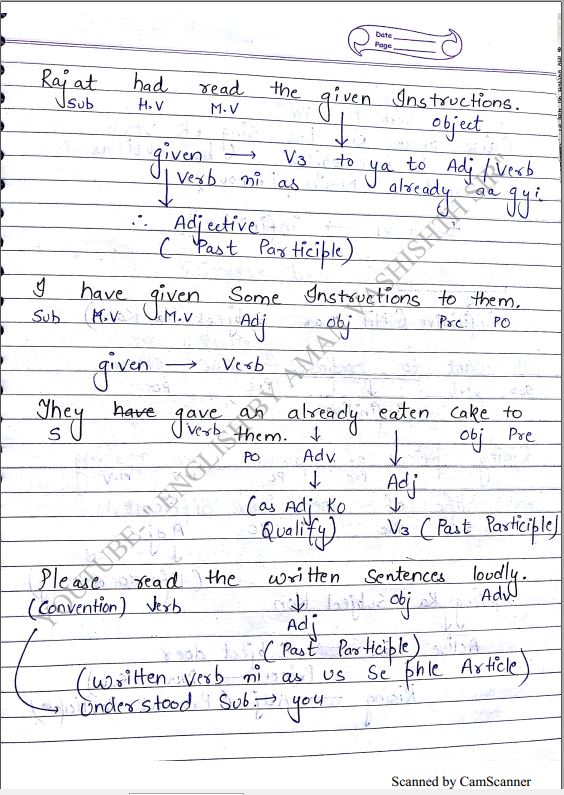 Date
Page
Rajat had read the given Instructions.
Sub H.V M.V object
given → V3 to ya to Adj / Verb
Verb ni as already aa gyi.
∴ Adjective
( Past Participle)
I have given Some Instructions to them.
Sub H.V M.V Adj Obj Pre PO
given → Verb
They have gave an already eaten cake to
S Verb them. ↓ obj Pre
PO Adv. Adj
(as Adj Ko ↓
Qualify) V3 ( Past Participle)
Please read the written sentences loudly.
(Convention) Verb ↓ Obj Adv.
Adj
( Past Participle)
(written verb ni as us se phle Article)
Understood Sub. → you
YOUTUBE-" ENGLISH BY AMAN VASHISHTH SIR"
Scanned by CamScanner